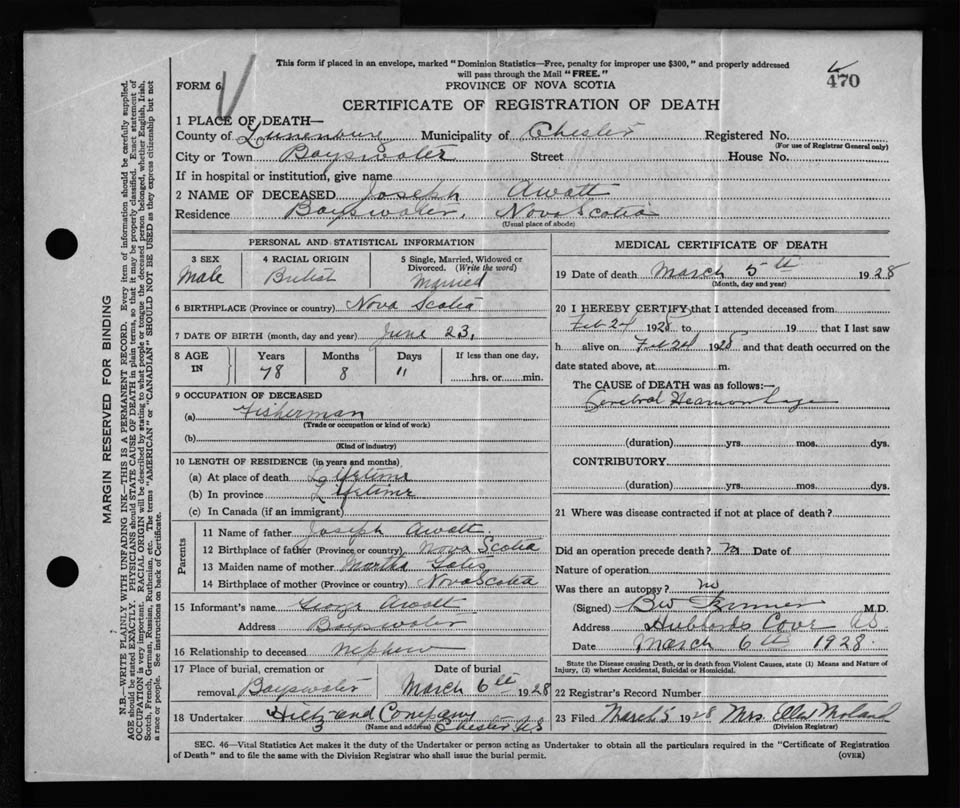 This form if placed in an envelope, marked "Dominion Statistics—Free, penalty for improper use $300," and properly addressed
will pass through the Mail "FREE."
470
FORM 6
PROVINCE OF NOVA SCOTIA
CERTIFICATE OF REGISTRATION OF DEATH
1 PLACE OF DEATH—
County of Lunenburg Municipality of Chester Registered No.
(For use of Registrar General only)
City or Town Bayswater Street House No.
If in hospital or institution, give name
2 NAME OF DECEASED Joseph Awalt
Residence Bayswater, Nova Scotia
(Usual place of abode)
PERSONAL AND STATISTICAL INFORMATION
3 SEX 4 RACIAL ORIGIN 5 Single, Married, Widowed or
Divorced. (Write the word)
Male British Married
6 BIRTHPLACE (Province or country) Nova Scotia
7 DATE OF BIRTH (month, day and year) June 23,
8 AGE IN Years Months Days If less than one day,
78 8 11 hrs. or min.
9 OCCUPATION OF DECEASED
(a) Fisherman
(Trade or occupation or kind of work)
(b)
(Kind of industry)
10 LENGTH OF RESIDENCE (in years and months)
(a) At place of death Lifetime
(b) In province Lifetime
(c) In Canada (if an immigrant)
Parents
11 Name of father Joseph Awalt
12 Birthplace of father (Province or country) Nova Scotia
13 Maiden name of mother Martha
14 Birthplace of mother (Province or country) Nova Scotia
15 Informant's name George Awalt
Address Bayswater
16 Relationship to deceased Nephew
17 Place of burial, cremation or Date of burial
removal Bayswater March 6th 1928
18 Undertaker Hiltz and Company
(Name and address) Chester NS
MEDICAL CERTIFICATE OF DEATH
19 Date of death March 5th 1928
(Month, day and year)
20 I HEREBY CERTIFY that I attended deceased from
Feb 24 1928 to 19 that I last saw
h alive on Feb 24 1928 and that death occurred on the
date stated above, at m.
The CAUSE of DEATH was as follows:—
Cerebral Heamorrhage
(duration) yrs. mos. dys.
CONTRIBUTORY
(duration) yrs. mos. dys.
21 Where was disease contracted if not at place of death?
Did an operation precede death? no Date of
Nature of operation
Was there an autopsy? no
(Signed) M.D.
Address Hubbards Cove NS.
Date March 6th 1928.
State the Disease causing Death, or in death from Violent Causes, state (1) Means and Nature of
Injury, (2) whether Accidental, Suicidal or Homicidal.
22 Registrar's Record Number
23 Filed March 5 1928 Mrs
(Division Registrar)
SEC. 46—Vital Statistics Act makes it the duty of the Undertaker or person acting as Undertaker to obtain all the particulars required in the "Certificate of Registration
of Death" and to file the same with the Division Registrar who shall issue the burial permit.
(OVER)
MARGIN RESERVED FOR BINDING
N.B.—WRITE PLAINLY WITH UNFADING INK—THIS IS A PERMANENT RECORD. Every item of information should be carefully supplied.
AGE should be stated EXACTLY. PHYSICIANS should STATE CAUSE OF DEATH in plain terms, so that it may be properly classified. Exact statement of
OCCUPATION is very important. RACIAL ORIGIN will be described by stating to what people or tongue the deceased person belonged, whether English, Irish,
Scotch, French, German, Russian, Ruthenian, etc. The terms "AMERICAN" or "CANADIAN" SHOULD NOT BE USED as they express citizenship but not
a race or people. See instructions on back of Certificate.